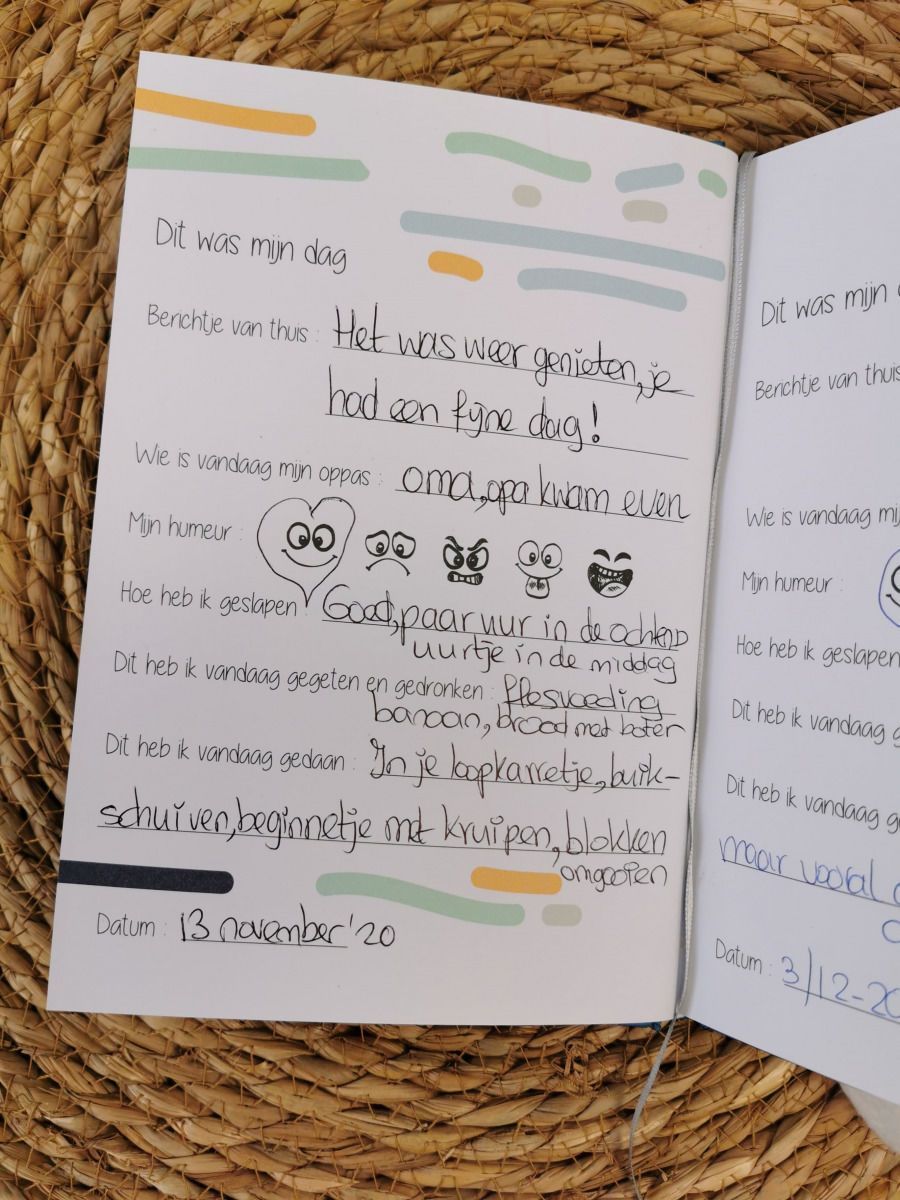 Dit was mijn dag
Berichtje van thuis : Het was weer genieten, je
had een fijne dag!
Wie is vandaag mijn oppas : oma, opa kwam even
Mijn humeur :
Hoe heb ik geslapen Goed, paar uur in de ochtend
uurtje in de middag
Dit heb ik vandaag gegeten en gedronken : flesvoeding
banaan, brood met boter
Dit heb ik vandaag gedaan : In je loopkarretje, buik-
schuiven, beginnetje met kruipen, blokken
omgooien
Datum : 13 november '20
Dit was mijn
Berichtje van thuis
Wie is vandaag mij
Mijn humeur :
Hoe heb ik geslapen
Dit heb ik vandaag g
Dit heb ik vandaag g
maar vooral
Datum : 3/12-20